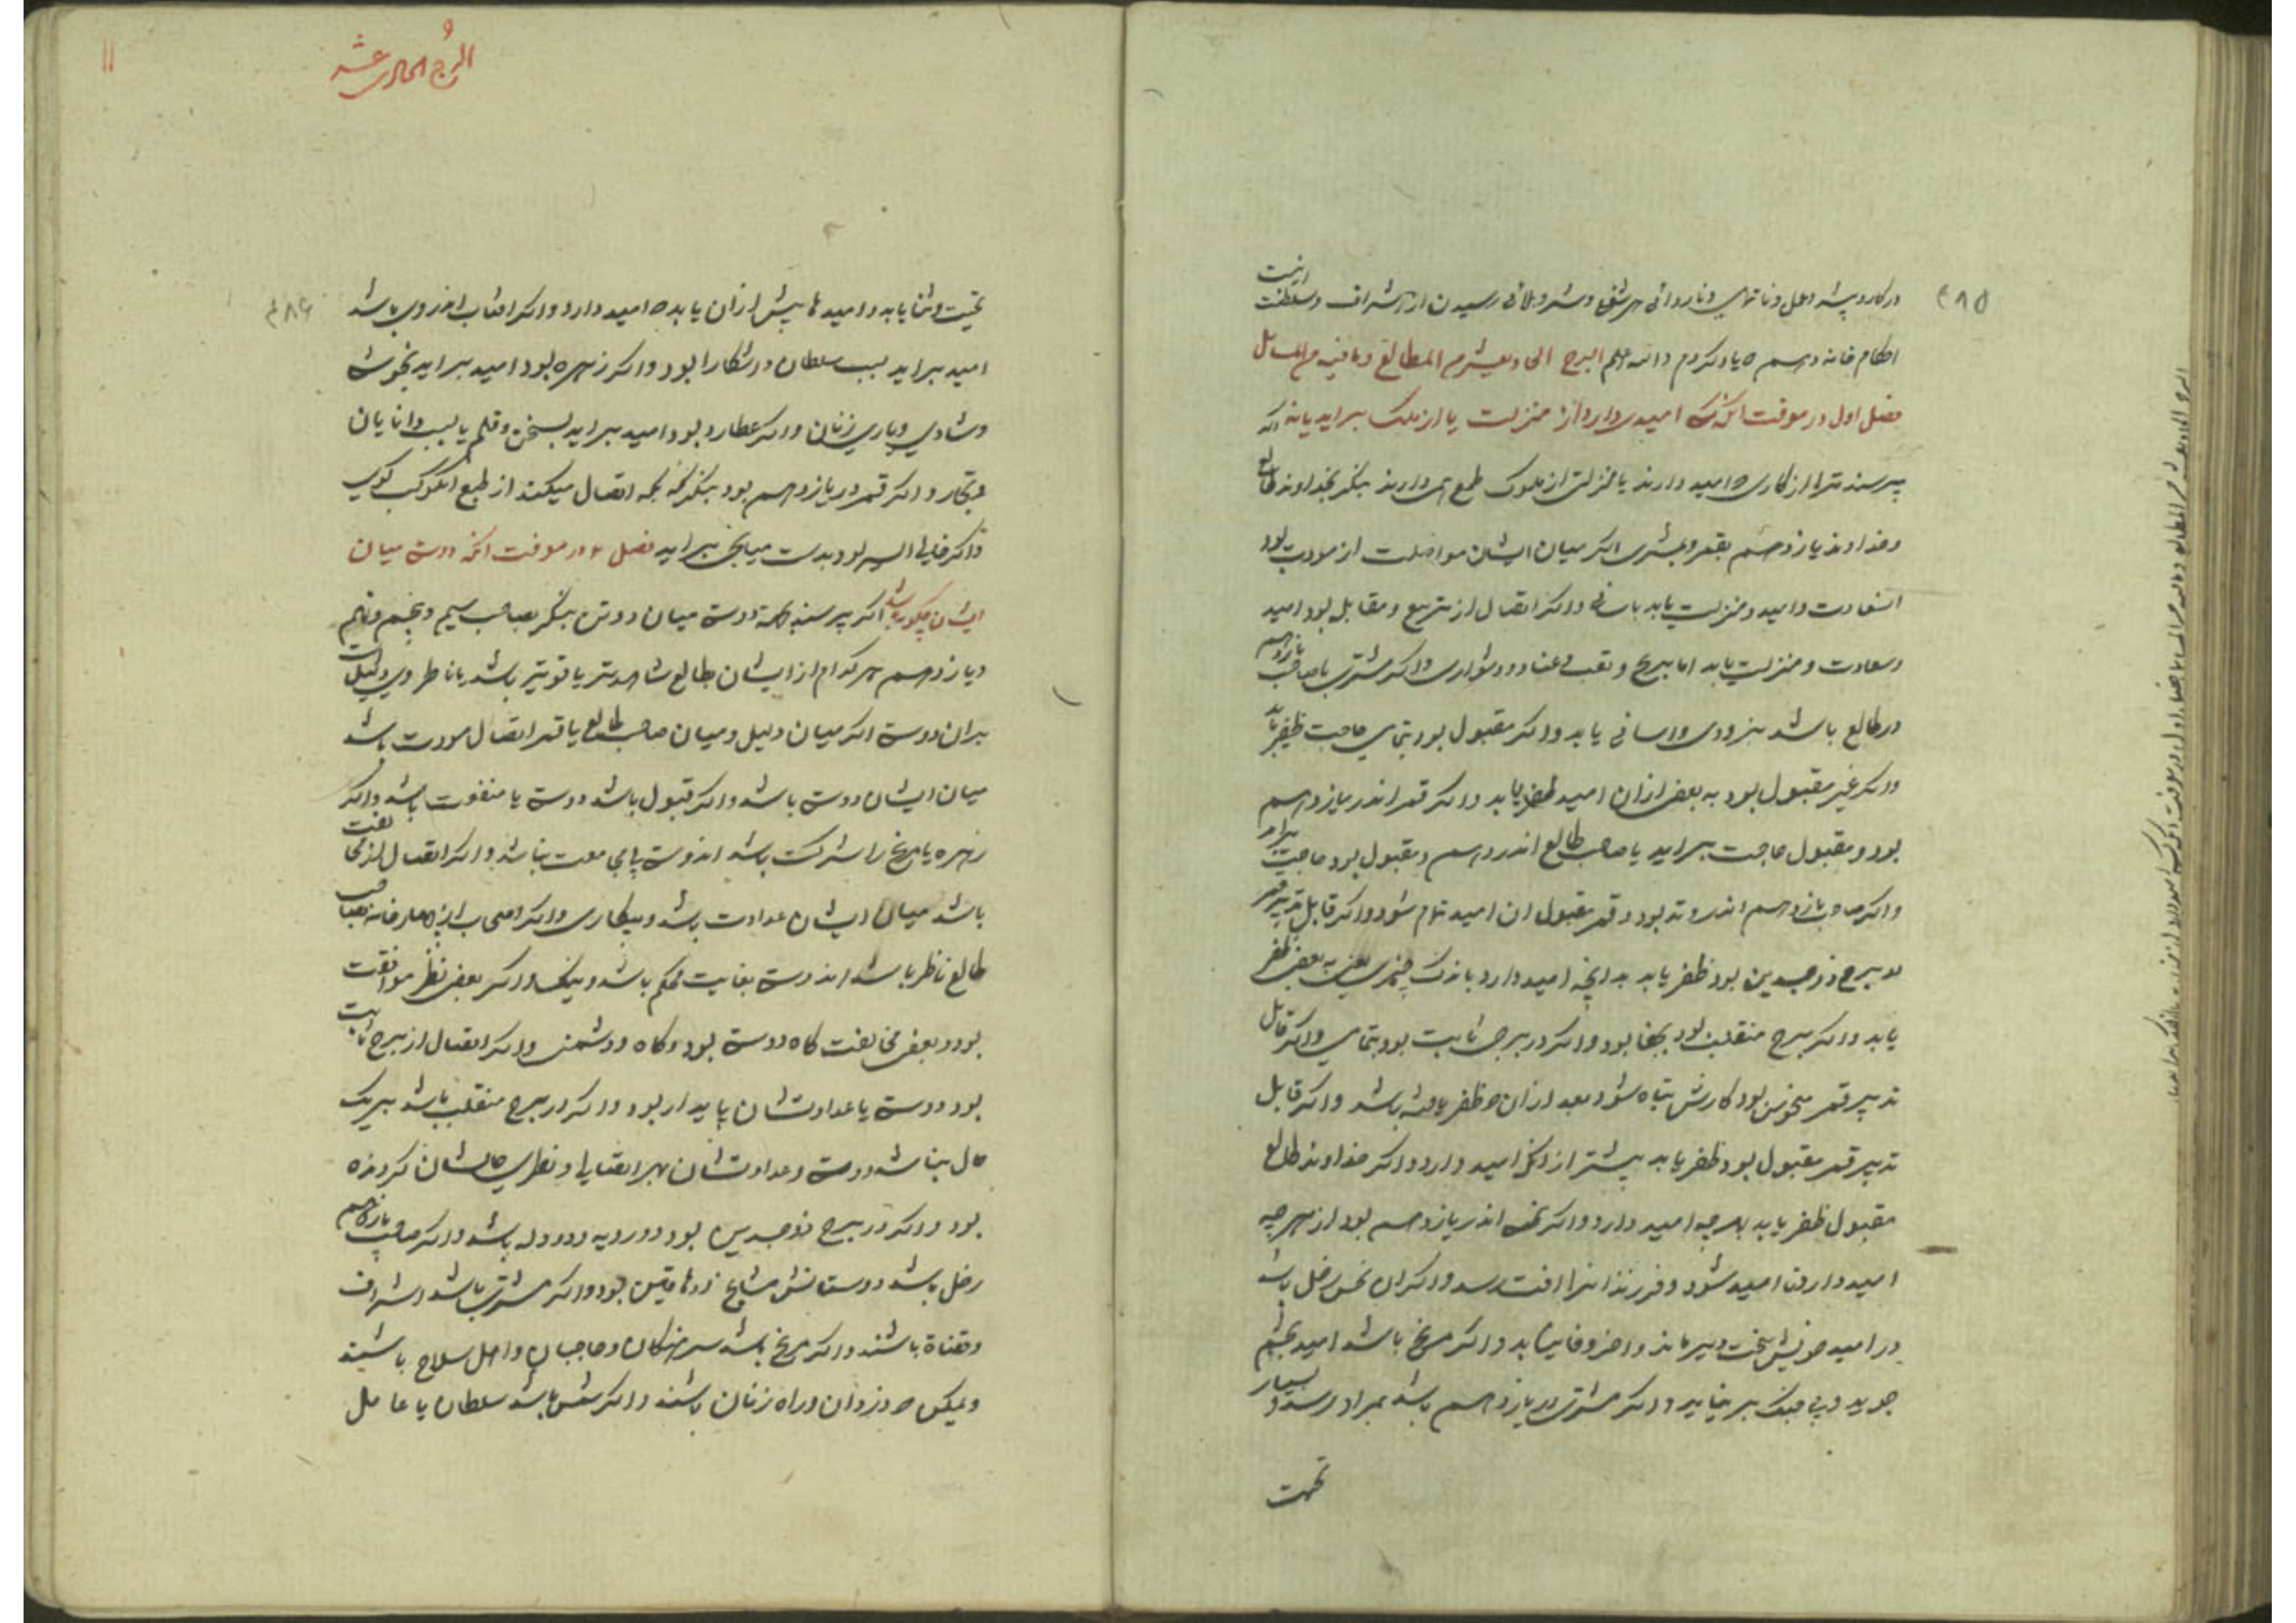 ۴۸۵
اینست
در کار و پیشه و عمل و ناتمامی و ناروائی هر شغل و شرو
احکام خانه دهم که یاد کردم والله اعلم البرج الحادیعشر من المطالع و مافیه من المسائل
فصل اول در معرفت آنکه کسی امیدی دارد از منزلت یا از ملک براید یا نه اگر
پرسند ترا از کاری که امید دارند یا منزلتی از ملوک طمع همی دارند بنگر بخداوند طالع
و خداوند یازدهم بقمر و بمشتری اگر میان ایشان مواصلت از مودت بود
از سعادت و امید و منزلت یابد باسانی و اگر اتصال از تربیع و مقابله بود امید
و سعادت و منزلت یابد اما برنج و تعب و عنا و دشواری و اگر مشتری با صاحب یازدهم
در طالع باشد بزودی و اسانی یابد و اگر مقبول بود بتمامی حاجت ظفر یابد
و اگر غیر مقبول بود به بعض ازان امید ظفر یابد و اگر قمر اندر یازدهم
بود و مقبول حاجت براید یا صاحب طالع اندر دهم و مقبول بود حاجت براید
و اگر صاحب یازدهم اندر وتد بود و قمر مقبول ان امید تمام شود و اگر قابل تدبیر قمر
به برج ذوجسدین بود ظفر یابد بدانچه امید دارد باندک چیزی یعنی به بعض ظفر
یابد و اگر برج منقلب بود بجفا بود و اگر در برجی ثابت بود بتمامی و اگر قابل
تدبیر قمر منحوس بود کارش تباه شود بعد ازان که ظفر یافته باشد و اگر قابل
تدبیر قمر مقبول بود ظفر یابد بیشتر از آنکه امید دارد و اگر خداوند طالع
مقبول ظفر یابد بهرچه امید دارد و اگر نحس اندر یازدهم بود از هرچه
امید دارد نا امید شود و فرزندانرا افت رسد و اگر ان نحس زحل باشد
در امید خویش سخت دیر ماند و اخر وفا نیابد و اگر مریخ باشد امید بخشم
جوید و بی جنگ بر نیاید و اگر مشتری در یازدهم باشد بمراد رسد و بسیار
تحیت
البرج الحادی عشر
۱۱
۴۸۶
تحیت و ثنا یابد و امیدها بیش ازان یابد که امید دارد و اگر افتاب اندر وی باشد
امید براید بسبب سلطان و اشکارا بود و اگر زهره بود امید براید بخوشی
و شادی و یاری زنان و اگر عطارد بود امید براید بسخن و قلم یا بسبب دانایان
و تجار و اگر قمر در یازدهم بود بنگر که بکه اتصال میکند از طبع ان کوکب کوی
و اگر خالی السیر بود بدست میانجی براید فصل ۲ در معرفت انکه دوستی میان
ایشان چگونه باشد اگر پرسند که دوستی میان دو تن بنگر بصاحب سیم و پنجم و نهم
و یازدهم هر کدام از ایشان بطالع شاهدتر یا قویتر باشد یا ناظر وی دلیل است
بران دوستی اگر میان دلیل و میان صاحب طالع یا قمر اتصال مودت باشد
میان ایشان دوستی باشد و اگر قبول باشد دوستی با منفعت باشد و اگر
زهره یا مریخ را شرکت باشد
باشد میان ایشان عداوت باشد و
طالع ناظر باشد اندوستی بغایت محکم باشد و نیک و اگر بعض نظر موافقت
بود و بعض مخالفت کاه دوستی بود و کاه دشمنی و اگر اتصال از برج ثابت
بود دوستی یا عداوتشان پایدار بود و اگر در برج منقلب باشد بریک
حال نباشد دوستی و عداوتشان
بود و اگر در برج ذوجسدین بود دو رویه و دو دله باشد و اگر صاحب یازدهم
زحل باشد دوستانش مشایخ و دهاقین بود و اگر مشتری باشد اشراف
و قضاة باشند و اگر مریخ باشد سرهنگان و حاجبان و اهل سلاح باشند
و لیکن دزدان و راه زنان باشند و اگر شمس باشد سلطان یا عامل